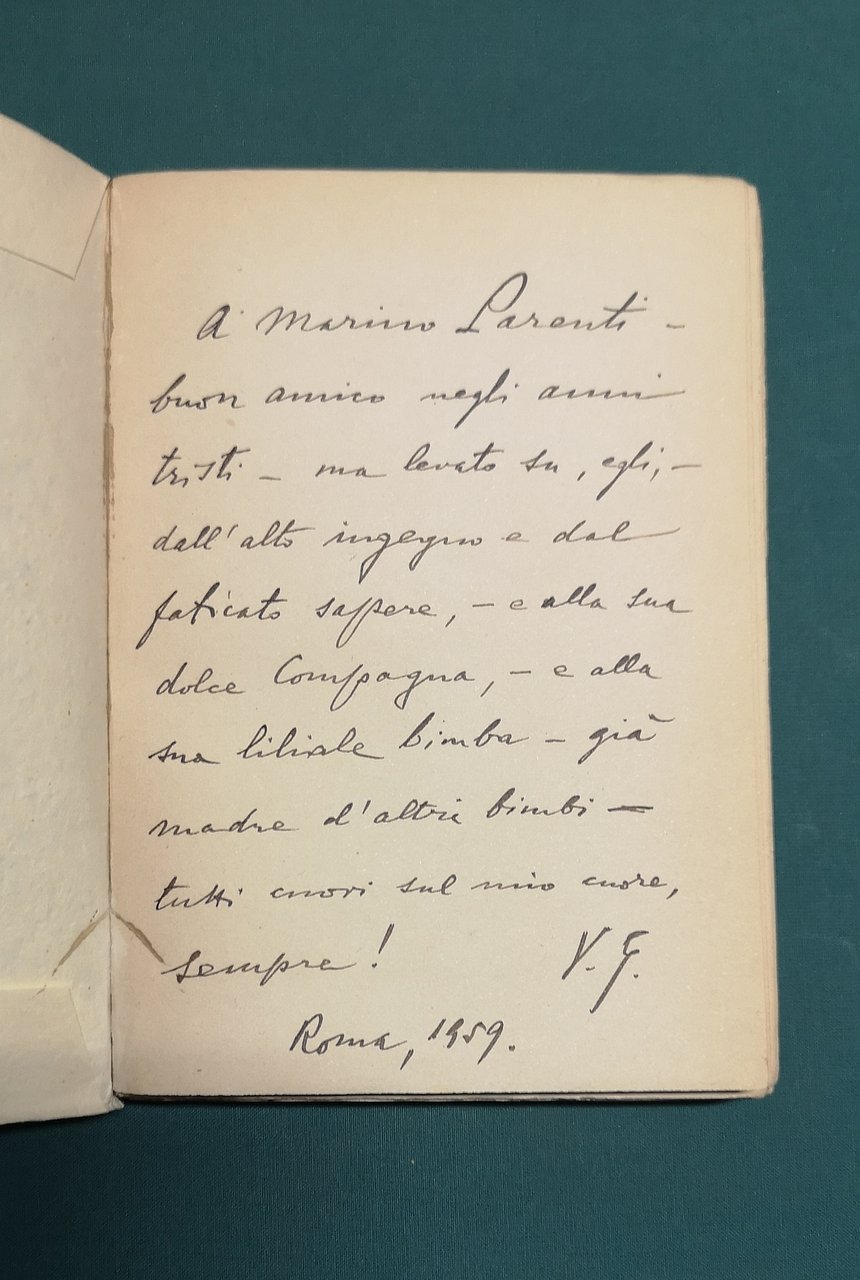 A Marino Parenti –
buon amico negli anni
tristi – ma levato su, egli, –
dall'alto ingegno e dal
faticato sapere, – e alla sua
dolce Compagna, – e alla
sua liliale bimba – già
madre d'altri bimbi –
tutti cuori sul mio cuore,
sempre! V. G.
Roma, 1959.